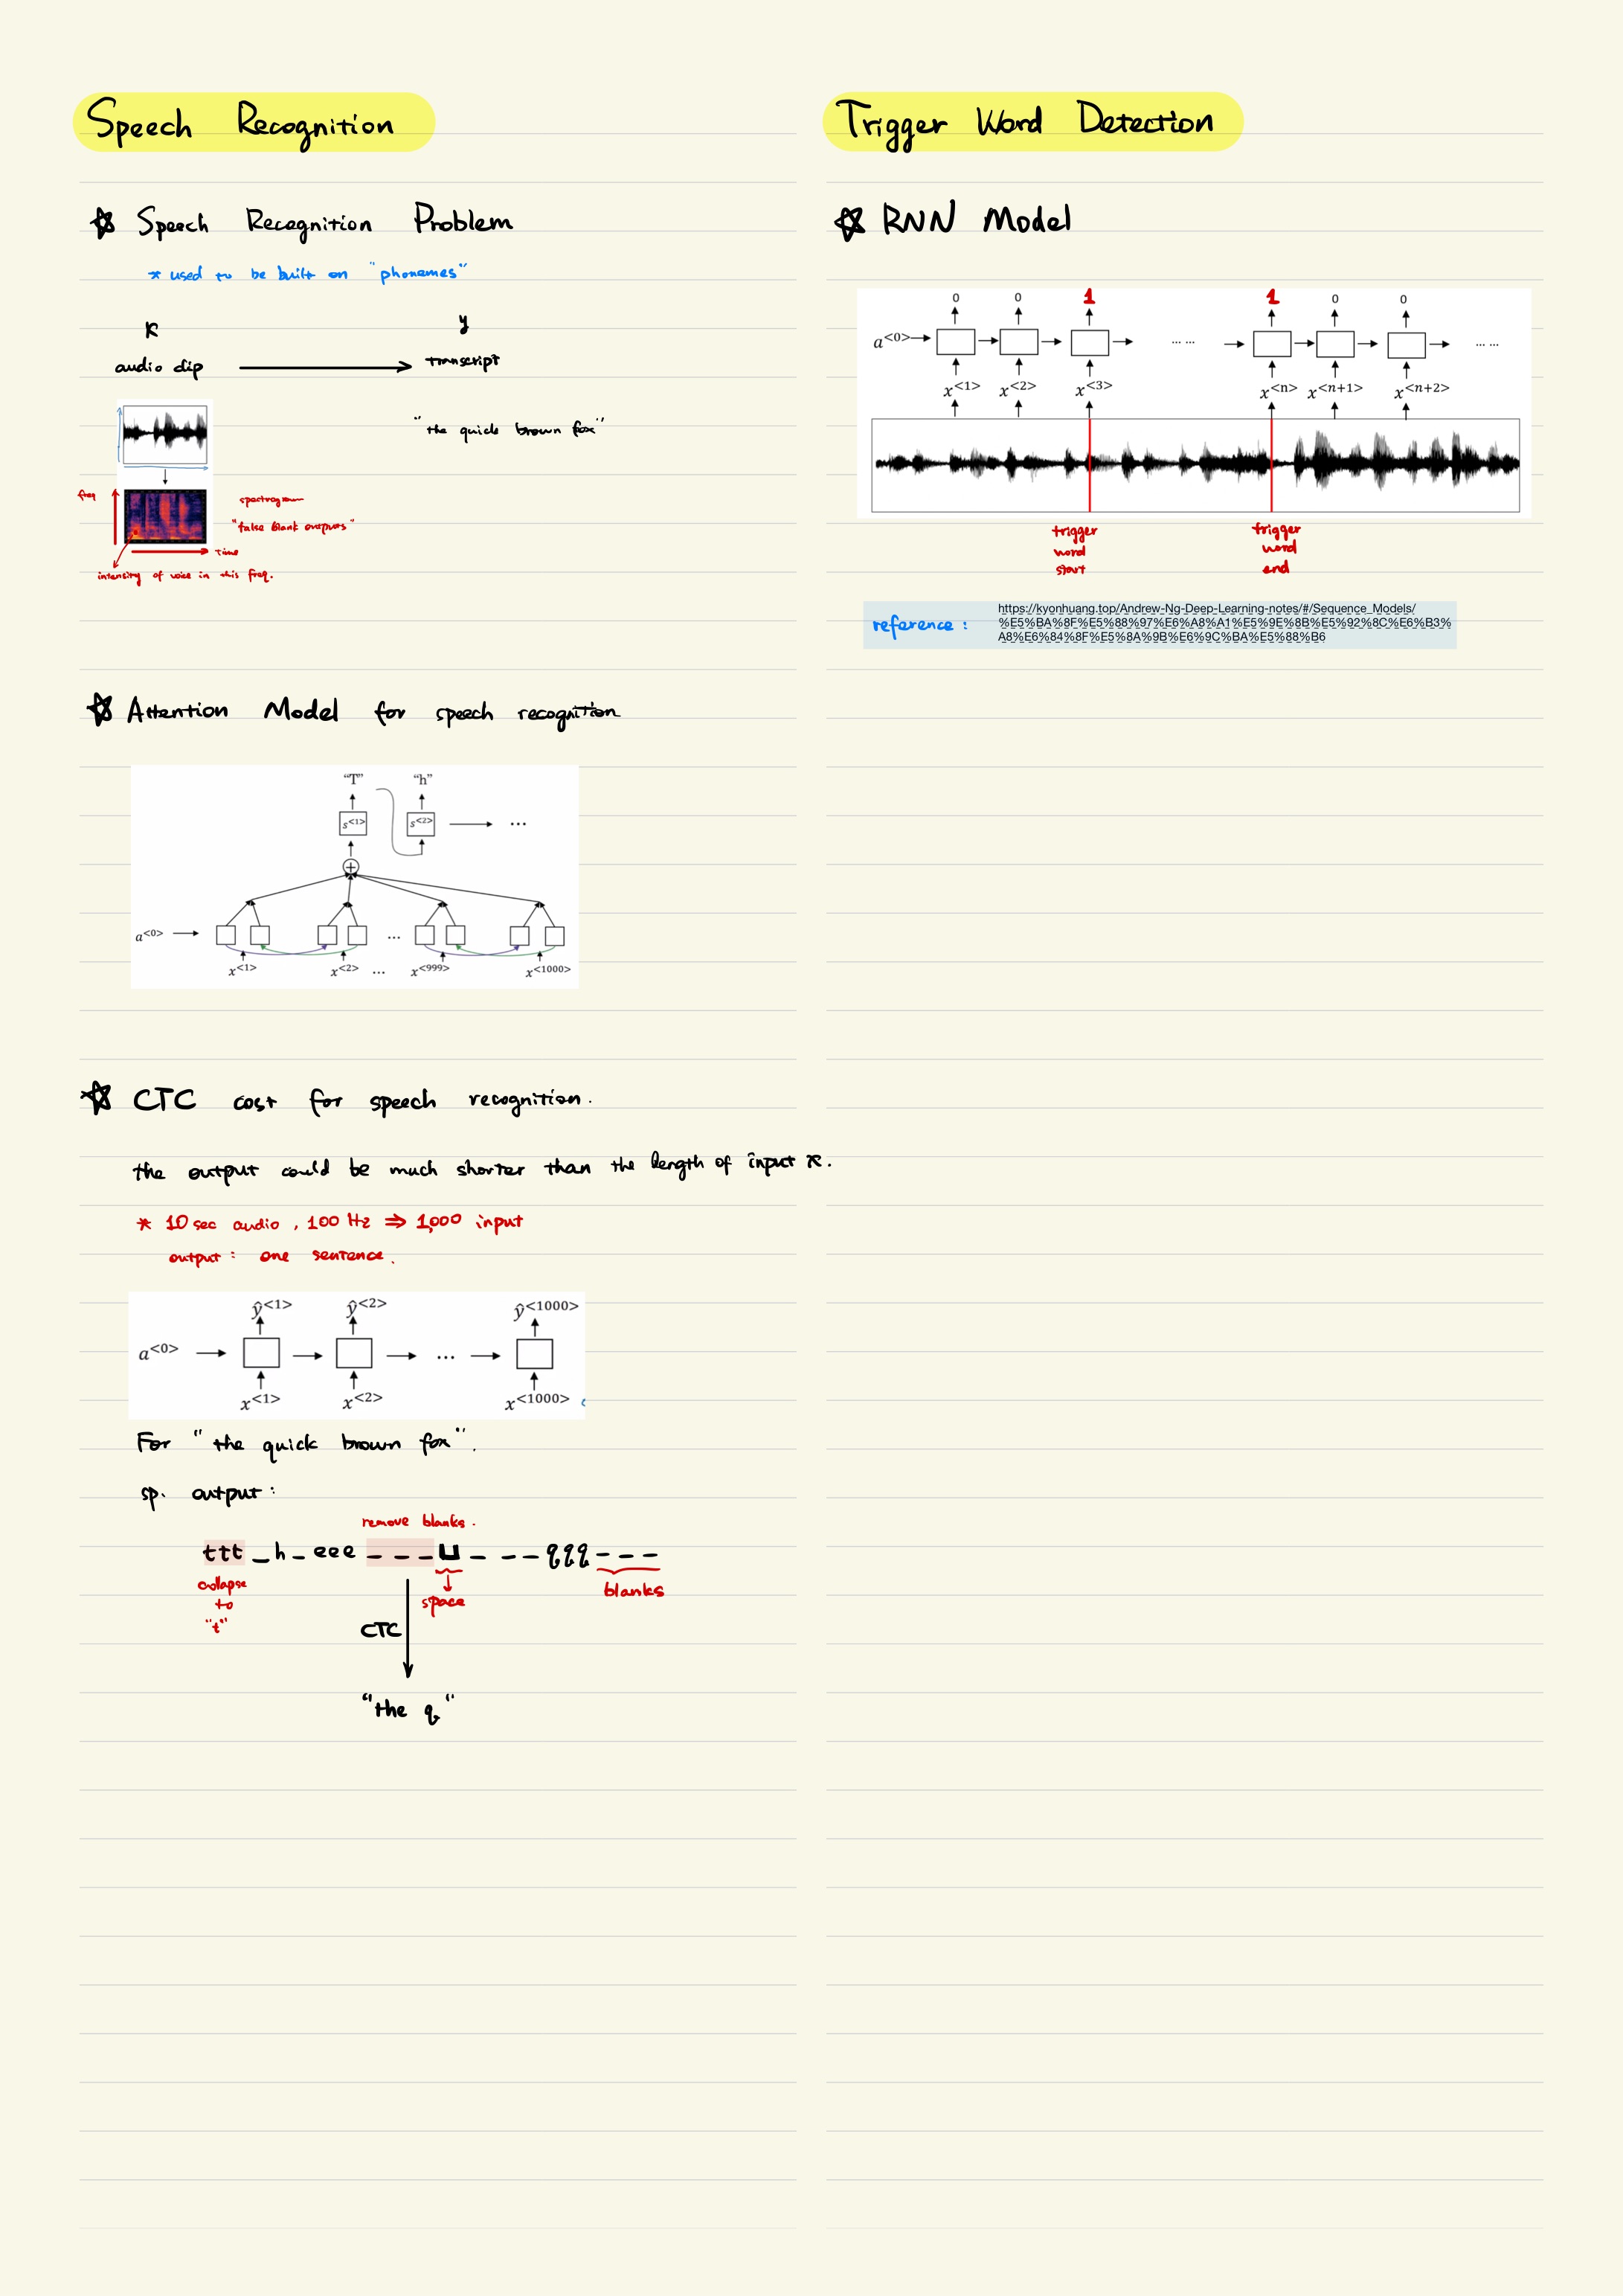 Speech Recognition
☆ Speech Recognition Problem
* used to be built on "phonemes"
x y
audio clip → transcript
"the quick brown fox"
freq
spectrogram
"false blank outputs"
time
intensity of voice in this freq.
☆ Attention Model for speech recognition
"T" "h"
s<1> s<2> ...
a<0>
...
x<1> x<2> ... x<999> x<1000>
☆ CTC cost for speech recognition.
the output could be much shorter than the length of input x.
* 10 sec audio, 100 Hz ⇒ 1,000 input
output: one sentence.
ŷ<1> ŷ<2> ŷ<1000>
a<0> ...
x<1> x<2> x<1000>
For "the quick brown fox".
sp. output:
remove blanks.
ttt _ h _ eee _ _ _ ⊔ _ _ _ _ qqq _ _ _
collapse
to
"t"
space
blanks
CTC
"the q"
Trigger Word Detection
☆ RNN Model
0 0 1 1 0 0
a<0> ... ... ... ...
x<1> x<2> x<3> x<n> x<n+1> x<n+2>
trigger
word
start
trigger
word
end
reference:
https://kyonhuang.top/Andrew-Ng-Deep-Learning-notes/#/Sequence_Models/
%E5%BA%8F%E5%88%97%E6%A8%A1%E5%9E%8B%E5%92%8C%E6%B3%
A8%E6%84%8F%E5%8A%9B%E6%9C%BA%E5%88%B6